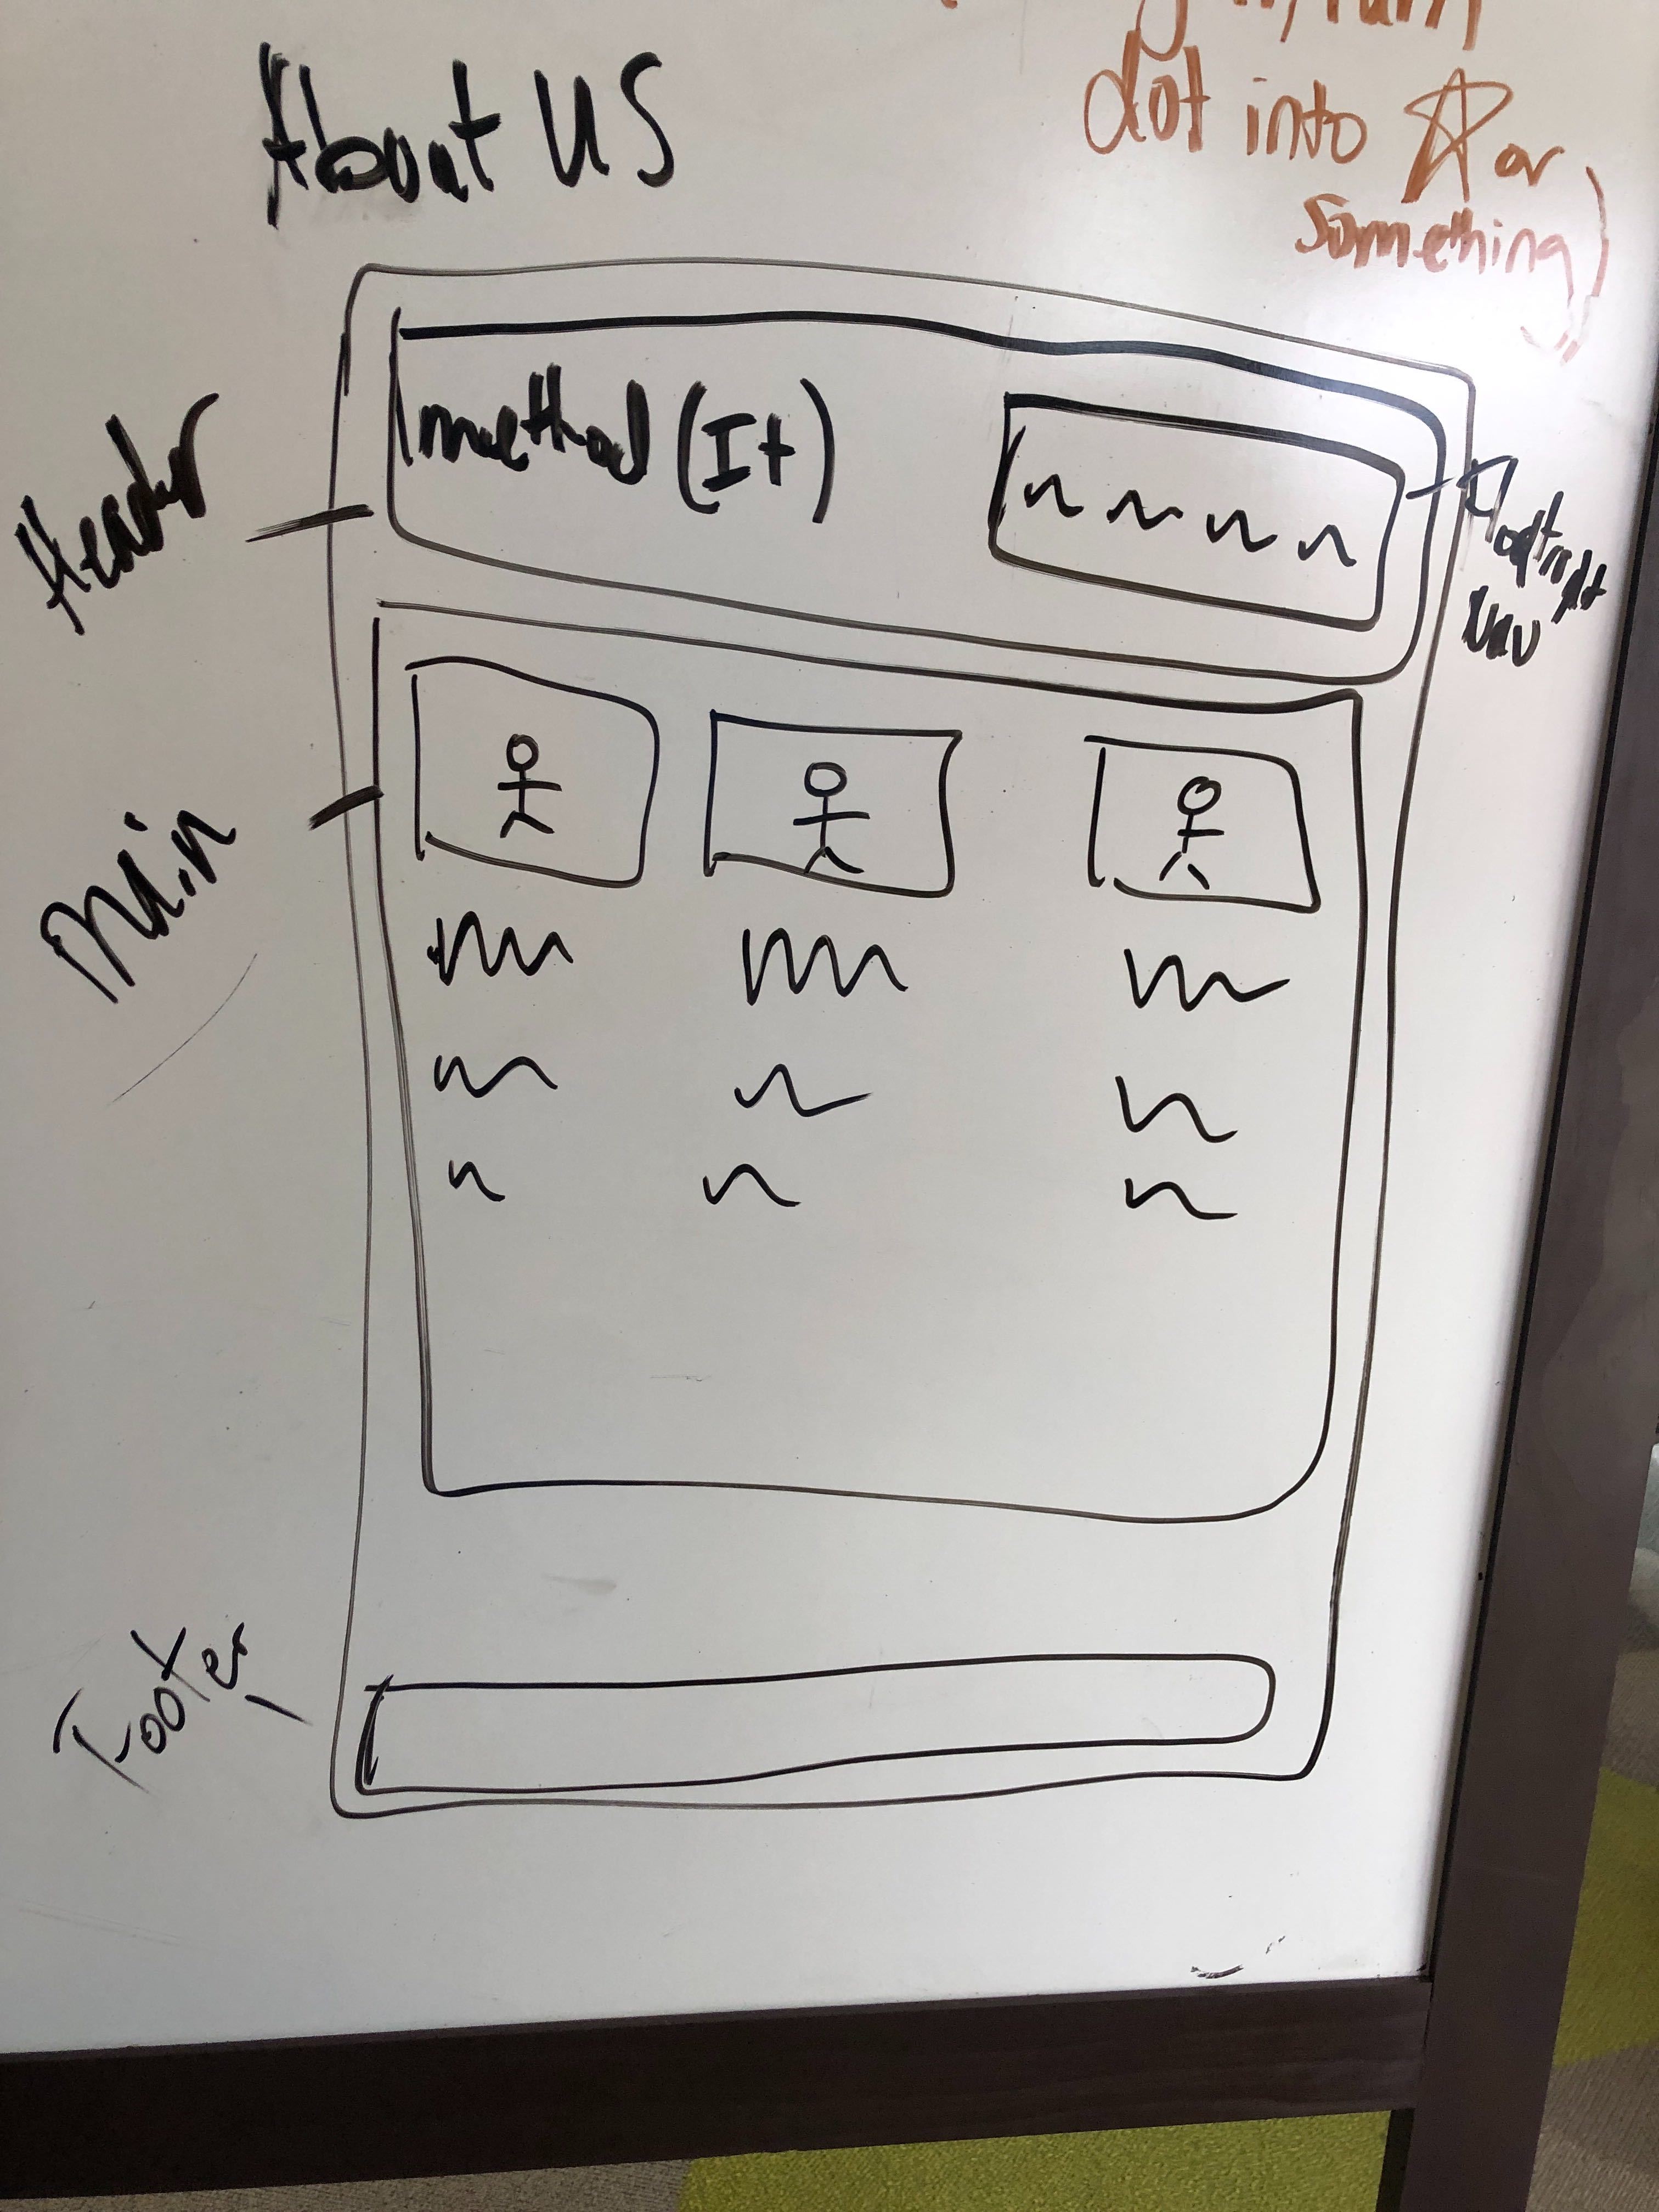 dot into ☆ or
something)
About US
Header
method (It)
Float right
Nav
Main
Footer